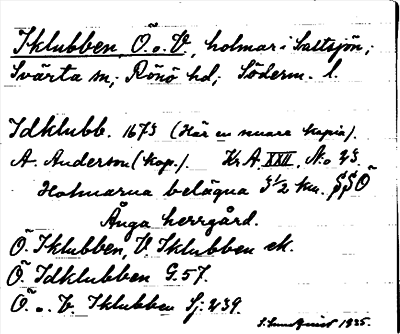 Iklubben, Ö. o. V., holmar i Saltsjön,
Svärta sn, Rönö hd, Söderm. l.
Idklubb. 1673 (Här en senare kopia).
A. Anderson (kop.). Kr A. XXII, No 23.
Holmarna belägna 3 1/2 km. SSÖ
Ånga herrgård.
Ö. Iklubben, V. Iklubben ek.
Ö. Idklubben G. 57.
Ö. o. V. Iklubben Sj. 239.
1935.